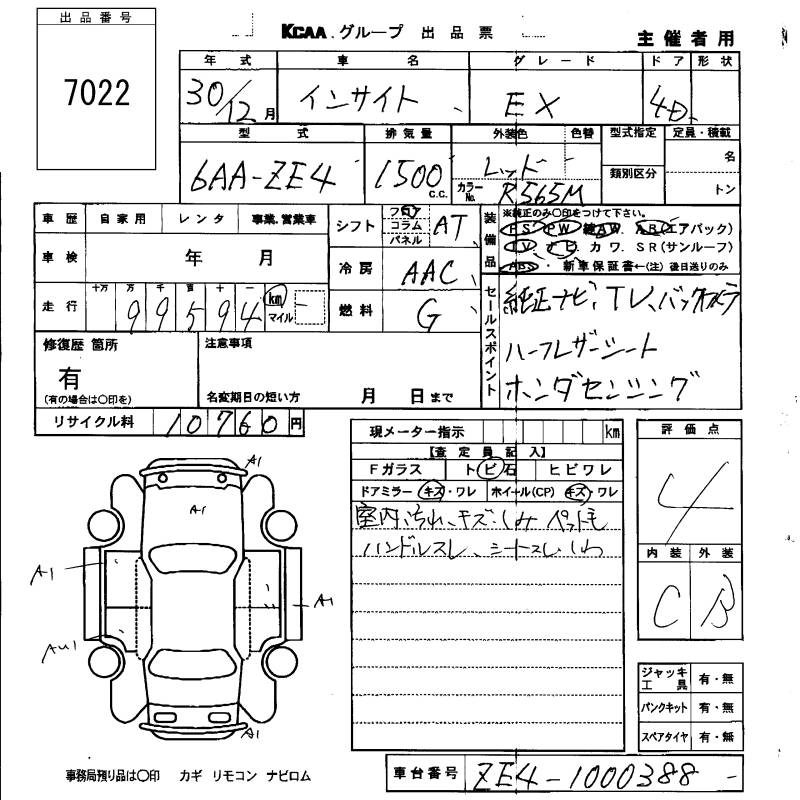 出品番号
7022
KCAA.グループ 出品票
主催者用
年式 車名 グレード ドア 形状
30/12月 インサイト EX 4D
型式 排気量 外装色 色替 型式指定 定員・積載
6AA-ZE4 1500 C.C. レッド 名
カラーNo. R565M 類別区分 トン
車歴 自家用 レンタ 事業.営業車
車検 年 月
走行 十万 万 千 百 十 一
99594 km マイル
シフト フロア コラム パネル AT
冷房 AAC
燃料 G
装備品
※純正のみ○印をつけて下さい。
PS PW 純AW. AB(エアバック)
TV. ナビ. カワ. SR(サンルーフ)
ABS・ 新車保証書←(注) 後日送りのみ
セールスポイント
純正ナビ、TV、バックカメラ
ハーフレザーシート
ホンダセンシング
修復歴 箇所
有
(有の場合は○印を)
注意事項
名変期日の短い方 月 日まで
リサイクル料 10760円
現メーター指示 km
【査定員記入】
Fガラス トビ石 ヒビワレ
ドアミラー キズ・ワレ ホイール(CP) キズ・ワレ
室内汚れ、キズ・しみ ペット毛
ハンドルスレ、シートスレ・しわ
評価点
4
内装 外装
C B
A1
A1
A1
A1
AU1
A1
ジャッキ工具 有・無
パンクキット 有・無
スペアタイヤ 有・無
事務局預り品は○印 カギ リモコン ナビロム
車台番号 ZE4-1000388